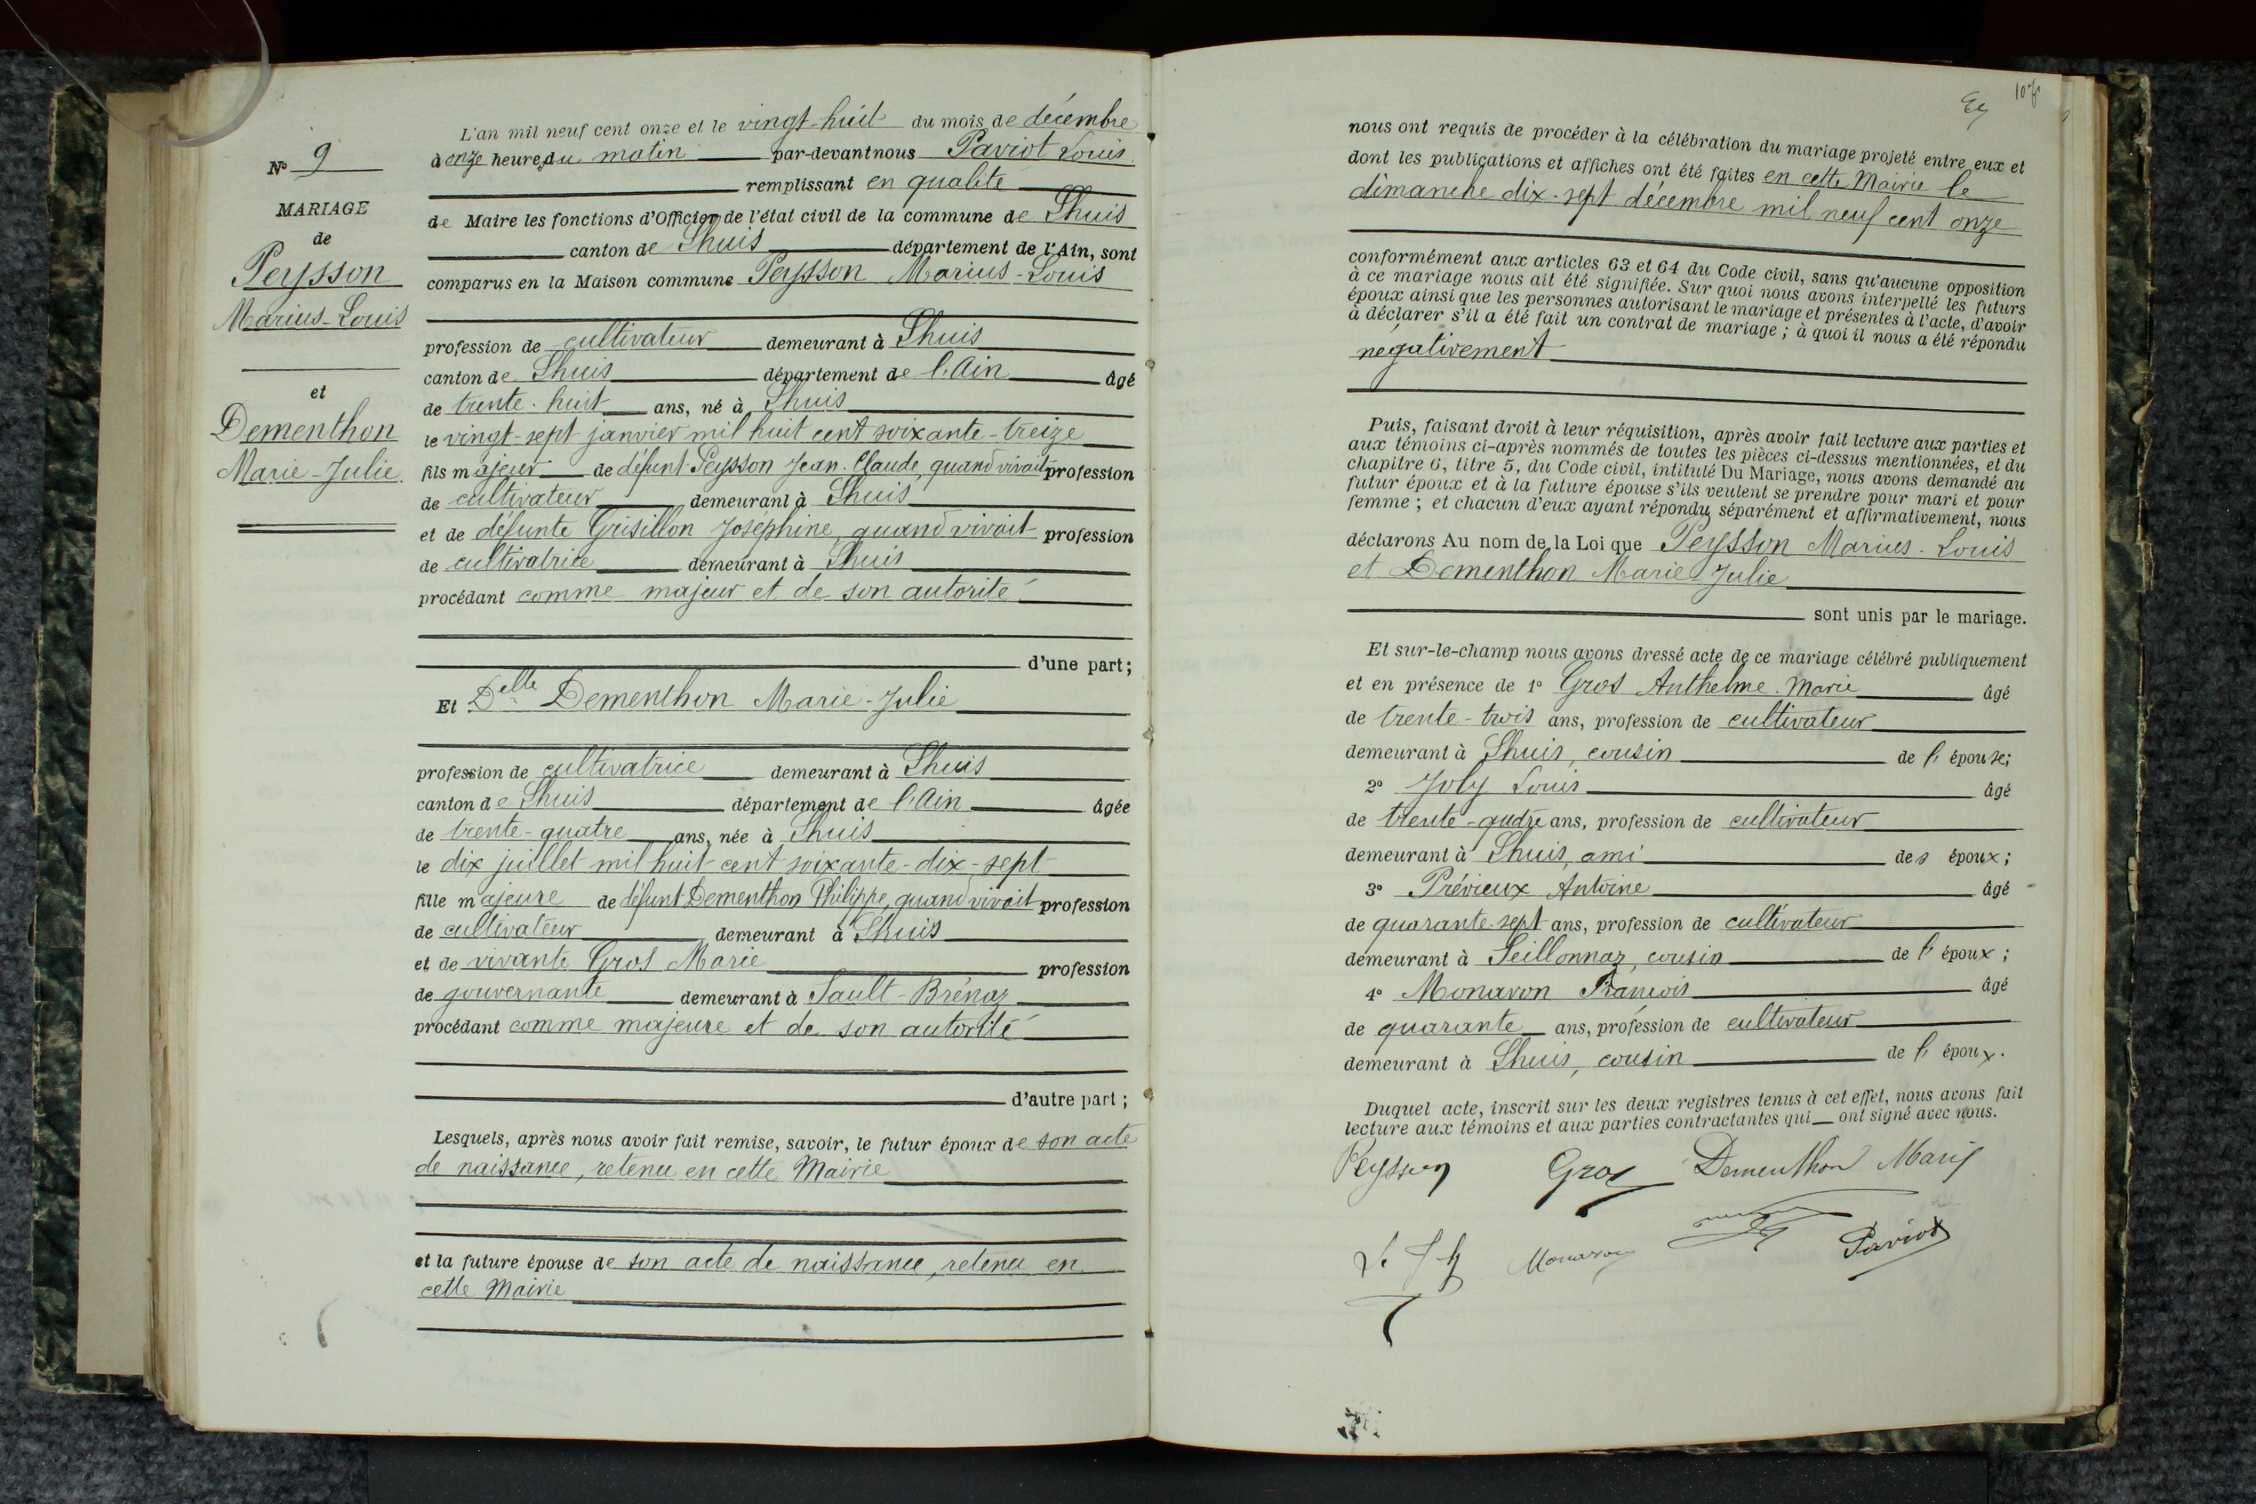 N° 9
MARIAGE
de
Peysson
Marius-Louis
et
Dementhon
Marie-Julie.
L'an mil neuf cent onze et le vingt-huit du mois de décembre
à onze heures du matin par-devant nous Paviot Louis
remplissant en qualité
de Maire les fonctions d'Officier de l'état civil de la commune de Lhuis
canton de Lhuis département de l'Ain, sont
comparus en la Maison commune Peysson Marius-Louis
profession de cultivateur demeurant à Lhuis
canton de Lhuis département de l'Ain âgé
de trente-huit ans, né à Lhuis
le vingt-sept janvier mil huit cent soixante-treize
fils majeur de défunt Peysson Jean-Claude, quand vivait profession
de cultivateur demeurant à Lhuis
et de défunte Grisillon Joséphine, quand vivait profession
de cultivatrice demeurant à Lhuis
procédant comme majeur et de son autorité
d'une part;
Et Delle Dementhon Marie-Julie
profession de cultivatrice demeurant à Lhuis
canton de Lhuis département de l'Ain âgée
de trente-quatre ans, née à Lhuis
le dix juillet mil huit cent soixante-dix-sept
fille majeure de défunt Dementhon Philippe, quand vivait profession
de cultivateur demeurant à Lhuis
et de vivante Gros Marie profession
de gouvernante demeurant à Sault-Brénaz
procédant comme majeure et de son autorité
d'autre part;
Lesquels, après nous avoir fait remise, savoir, le futur époux de son acte
de naissance, retenu en cette Mairie
et la future épouse de son acte de naissance, retenu en
cette Mairie
nous ont requis de procéder à la célébration du mariage projeté entre eux et
dont les publications et affiches ont été faites en cette Mairie le
dimanche dix-sept décembre mil neuf cent onze
conformément aux articles 63 et 64 du Code civil, sans qu'aucune opposition
à ce mariage nous ait été signifiée. Sur quoi nous avons interpellé les futurs
époux ainsi que les personnes autorisant le mariage et présentes à l'acte, d'avoir
à déclarer s'il a été fait un contrat de mariage; à quoi il nous a été répondu
négativement
Puis, faisant droit à leur réquisition, après avoir fait lecture aux parties et
aux témoins ci-après nommés de toutes les pièces ci-dessus mentionnées, et du
chapitre 6, titre 5, du Code civil, intitulé Du Mariage, nous avons demandé au
futur époux et à la future épouse s'ils veulent se prendre pour mari et pour
femme; et chacun d'eux ayant répondu séparément et affirmativement, nous
déclarons Au nom de la Loi que Peysson Marius-Louis
et Dementhon Marie-Julie
sont unis par le mariage.
Et sur-le-champ nous avons dressé acte de ce mariage célébré publiquement
et en présence de 1° Gros Anthelme-Marie âgé
de trente-trois ans, profession de cultivateur
demeurant à Lhuis, cousin de l'épouse;
2° Joly Louis âgé
de trente-quatre ans, profession de cultivateur
demeurant à Lhuis, ami des époux;
3° Prévieux Antoine âgé
de quarante-sept ans, profession de cultivateur
demeurant à Seillonnaz, cousin de l'époux;
4° Monavon François âgé
de quarante ans, profession de cultivateur
demeurant à Lhuis, cousin de l'époux.
Duquel acte, inscrit sur les deux registres tenus à cet effet, nous avons fait
lecture aux témoins et aux parties contractantes qui ont signé avec nous.
Peysson Gros Dementhon Marie
Monavon Paviot